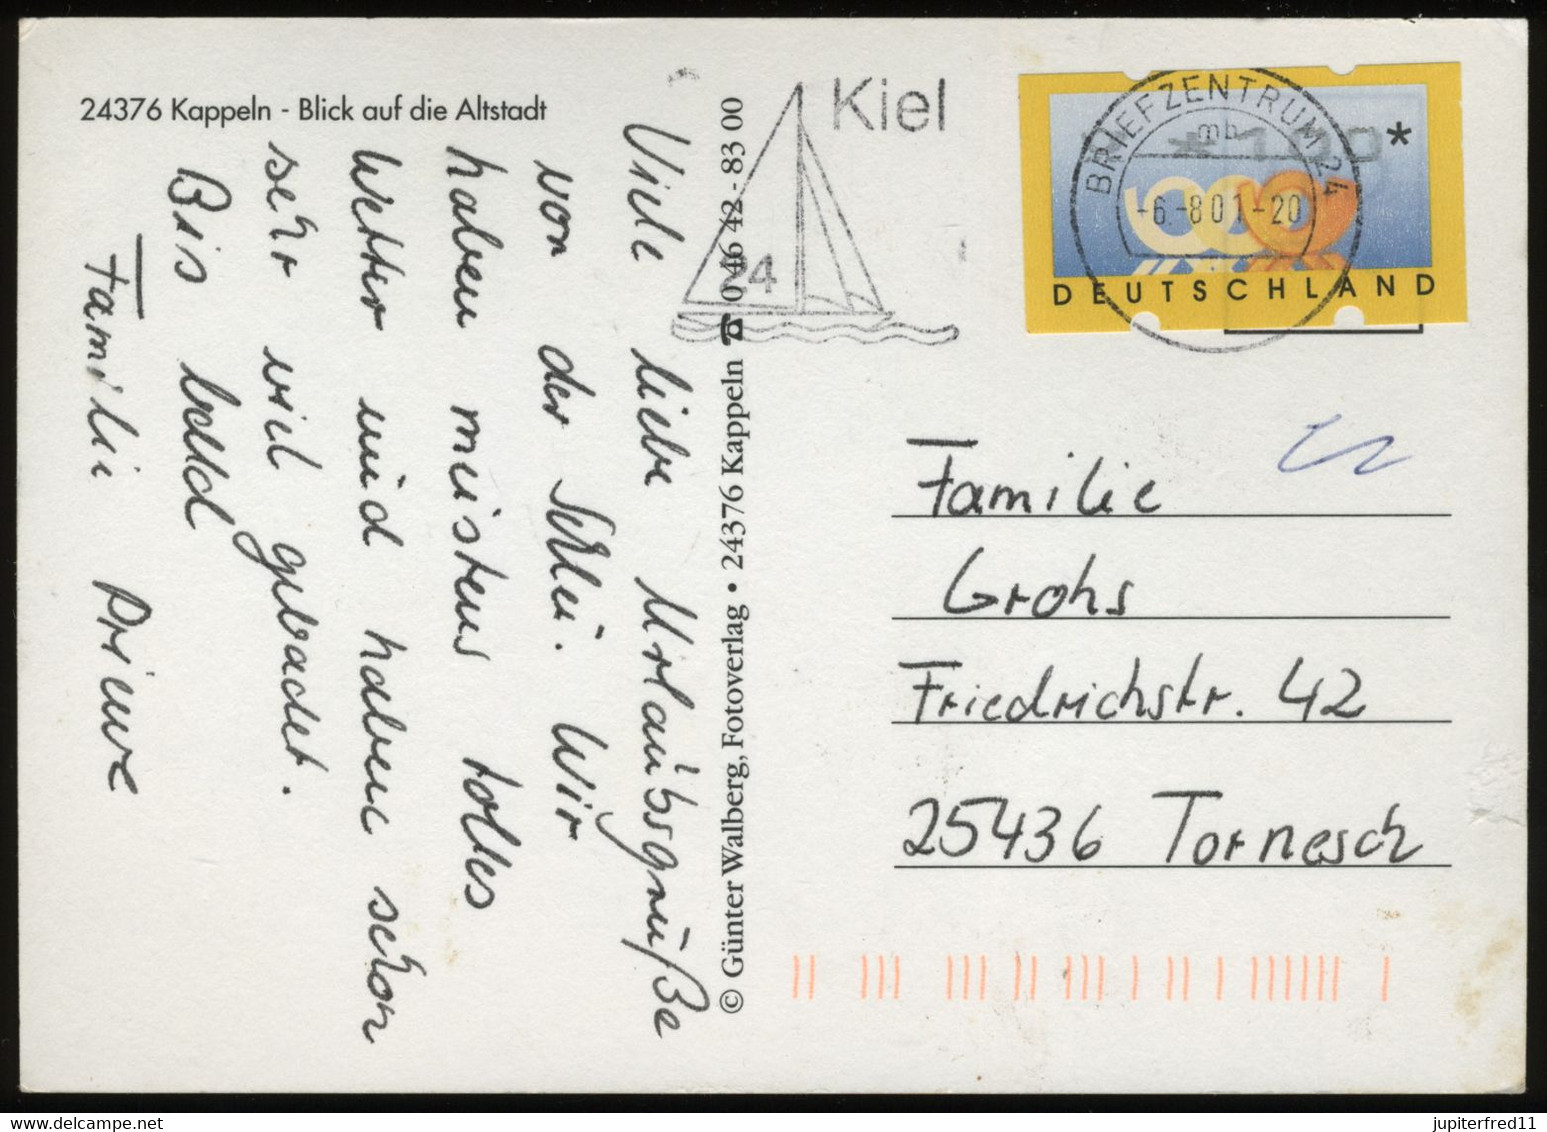 24376 Kappeln - Blick auf die Altstadt
Viele liebe Urlaubsgrüße
von der Schlei. Wir
haben meistens tolles
Wetter und haben schon
sehr viel gebadet.
Bis bald
Familie Priewe
© Günter Walberg, Fotoverlag • 24376 Kappeln ☎ 0 46 42 - 83 00
Kiel
24
BRIEFZENTRUM 24
mb
-6.-8 01-20
*100*
DEUTSCHLAND
Familie
Grohs
Friedrichstr. 42
25436 Tornesch
jupiterfred11